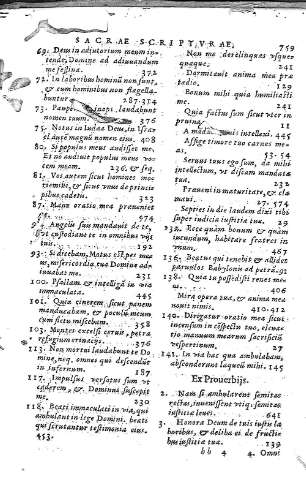 SACRAE SCRIPTVRAE, 759
69. Deus in adjutorium meum in-
tende, Domine ad adiuvandum
me festina. 372
72. In laboribus hominũ non sunt,
& cum hominibus non flagella-
buntur. 287.314
73. Pauper & inops laudabunt
nomen tuum. 376
75. Notus in Iudæa Deus, in Israel
et magnũ nomen eius. 408
80. Si populus meus audisset me,
Et no audiuit populus meus vo-
cem meam 236, & seq.
81. Vos autem sicut homines mo-
riemini, & sicut vnus de princi-
pibus cadetis. 323
87. Mane oratio mea præueniet
574
9. Angelis suis mandauit de te,
vt custodiant te in omnibus vijs
tuis. 192
93. Si dicebam, Motus est pes me-
us, misericordia tua Domine ad-
iuuabat me. 231
100. Psallam & intelligã in via
immaculata. 445
101. Quia cinerem sicut panem
manducabam, & poculũ meum
cum fletu miscebam. 358
103. Montes excelsi ceruis, petra
refugium erinacijs. 376
113. Non mortui laudabunt te Do-
mine, neq, omnes qui descendũt
in infernum. 187
117. Impulsus versatus sum vt
caderem, & Dominus suscepit
me. 230
118. Beati immaculati in via, qui
ambulant in lege Domini, beati
qui scrutantur testimonia eius.
453.
Non me derelinquas vsque-
quaque. 241
Dormitauit anima mea præ
tædio. 129
Bonum mihi quia humiliasti
me. 241
Quia factus sum sicut vter in
pruina. 11
A mandatis tuis intellexi. 445
Affige timore tuo carnes me-
as. 53.54
Seruus tuus ego sum, da mihi
intellectum, vt discam mandata
tua. 231
Præueni in maturitate, & cla-
maui. 27. 574
Septies in die laudem dixi tibi
super iudicia iustitiæ tuæ. 29
132. Ecce quàm bonum & quàm
iucundum, habitare fratres in
vnum. 467
136. Beatus qui tenebit & allidet
paruulos Babylonis ad petrã. 91
138. Quia tu possedisti renes me-
os. 406
Mira opera tua, & anima mea
nouit nimis. 410.412
140. Dirigatur oratio mea sicut
incensum in cõspectu tuo, eleua-
tio manuum mearum sacrificiũ
vespertinum. 27
141. In via hac qua ambulabam,
absconderunt laqueũ mihi. 145
Ex Prouerbijs.
2. Nam si ambularent semitas re-
ctas, inuenissent vtiq; semitas
iustitiæ leues. 641
3. Honora Deum de tuis iustis la-
boribus, & deliba ei de fructib'
tuæ iustitiæ tuæ. 139
bb 4 4. Omni